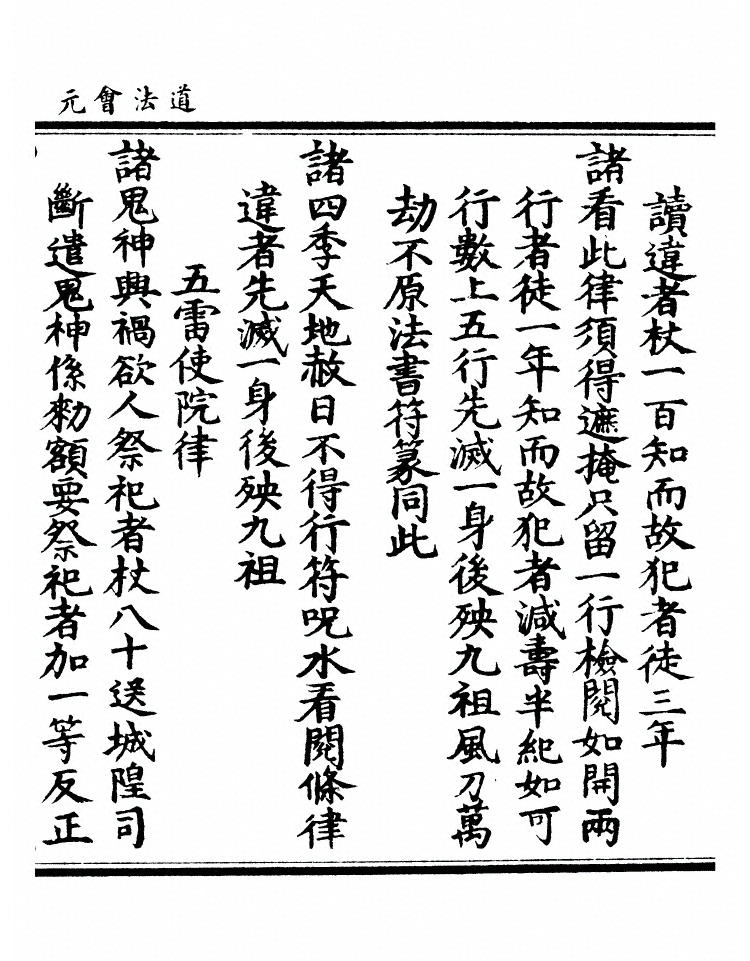 道法會元
讀違者杖一百知而故犯者徒三年
諸看此律須得遮掩只留一行檢閱如開兩
行者徒一年知而故犯者減壽半紀如可
行數上五行先滅一身後殃九祖風刀萬
劫不原法書符篆同此
諸四季天地赦日不得行符呪水看閱條律
違者先滅一身後殃九祖
五雷使院律
諸鬼神興禍欲人祭祀者杖八十送城隍司
斷遣鬼神係勑額要祭祀者加一等反正